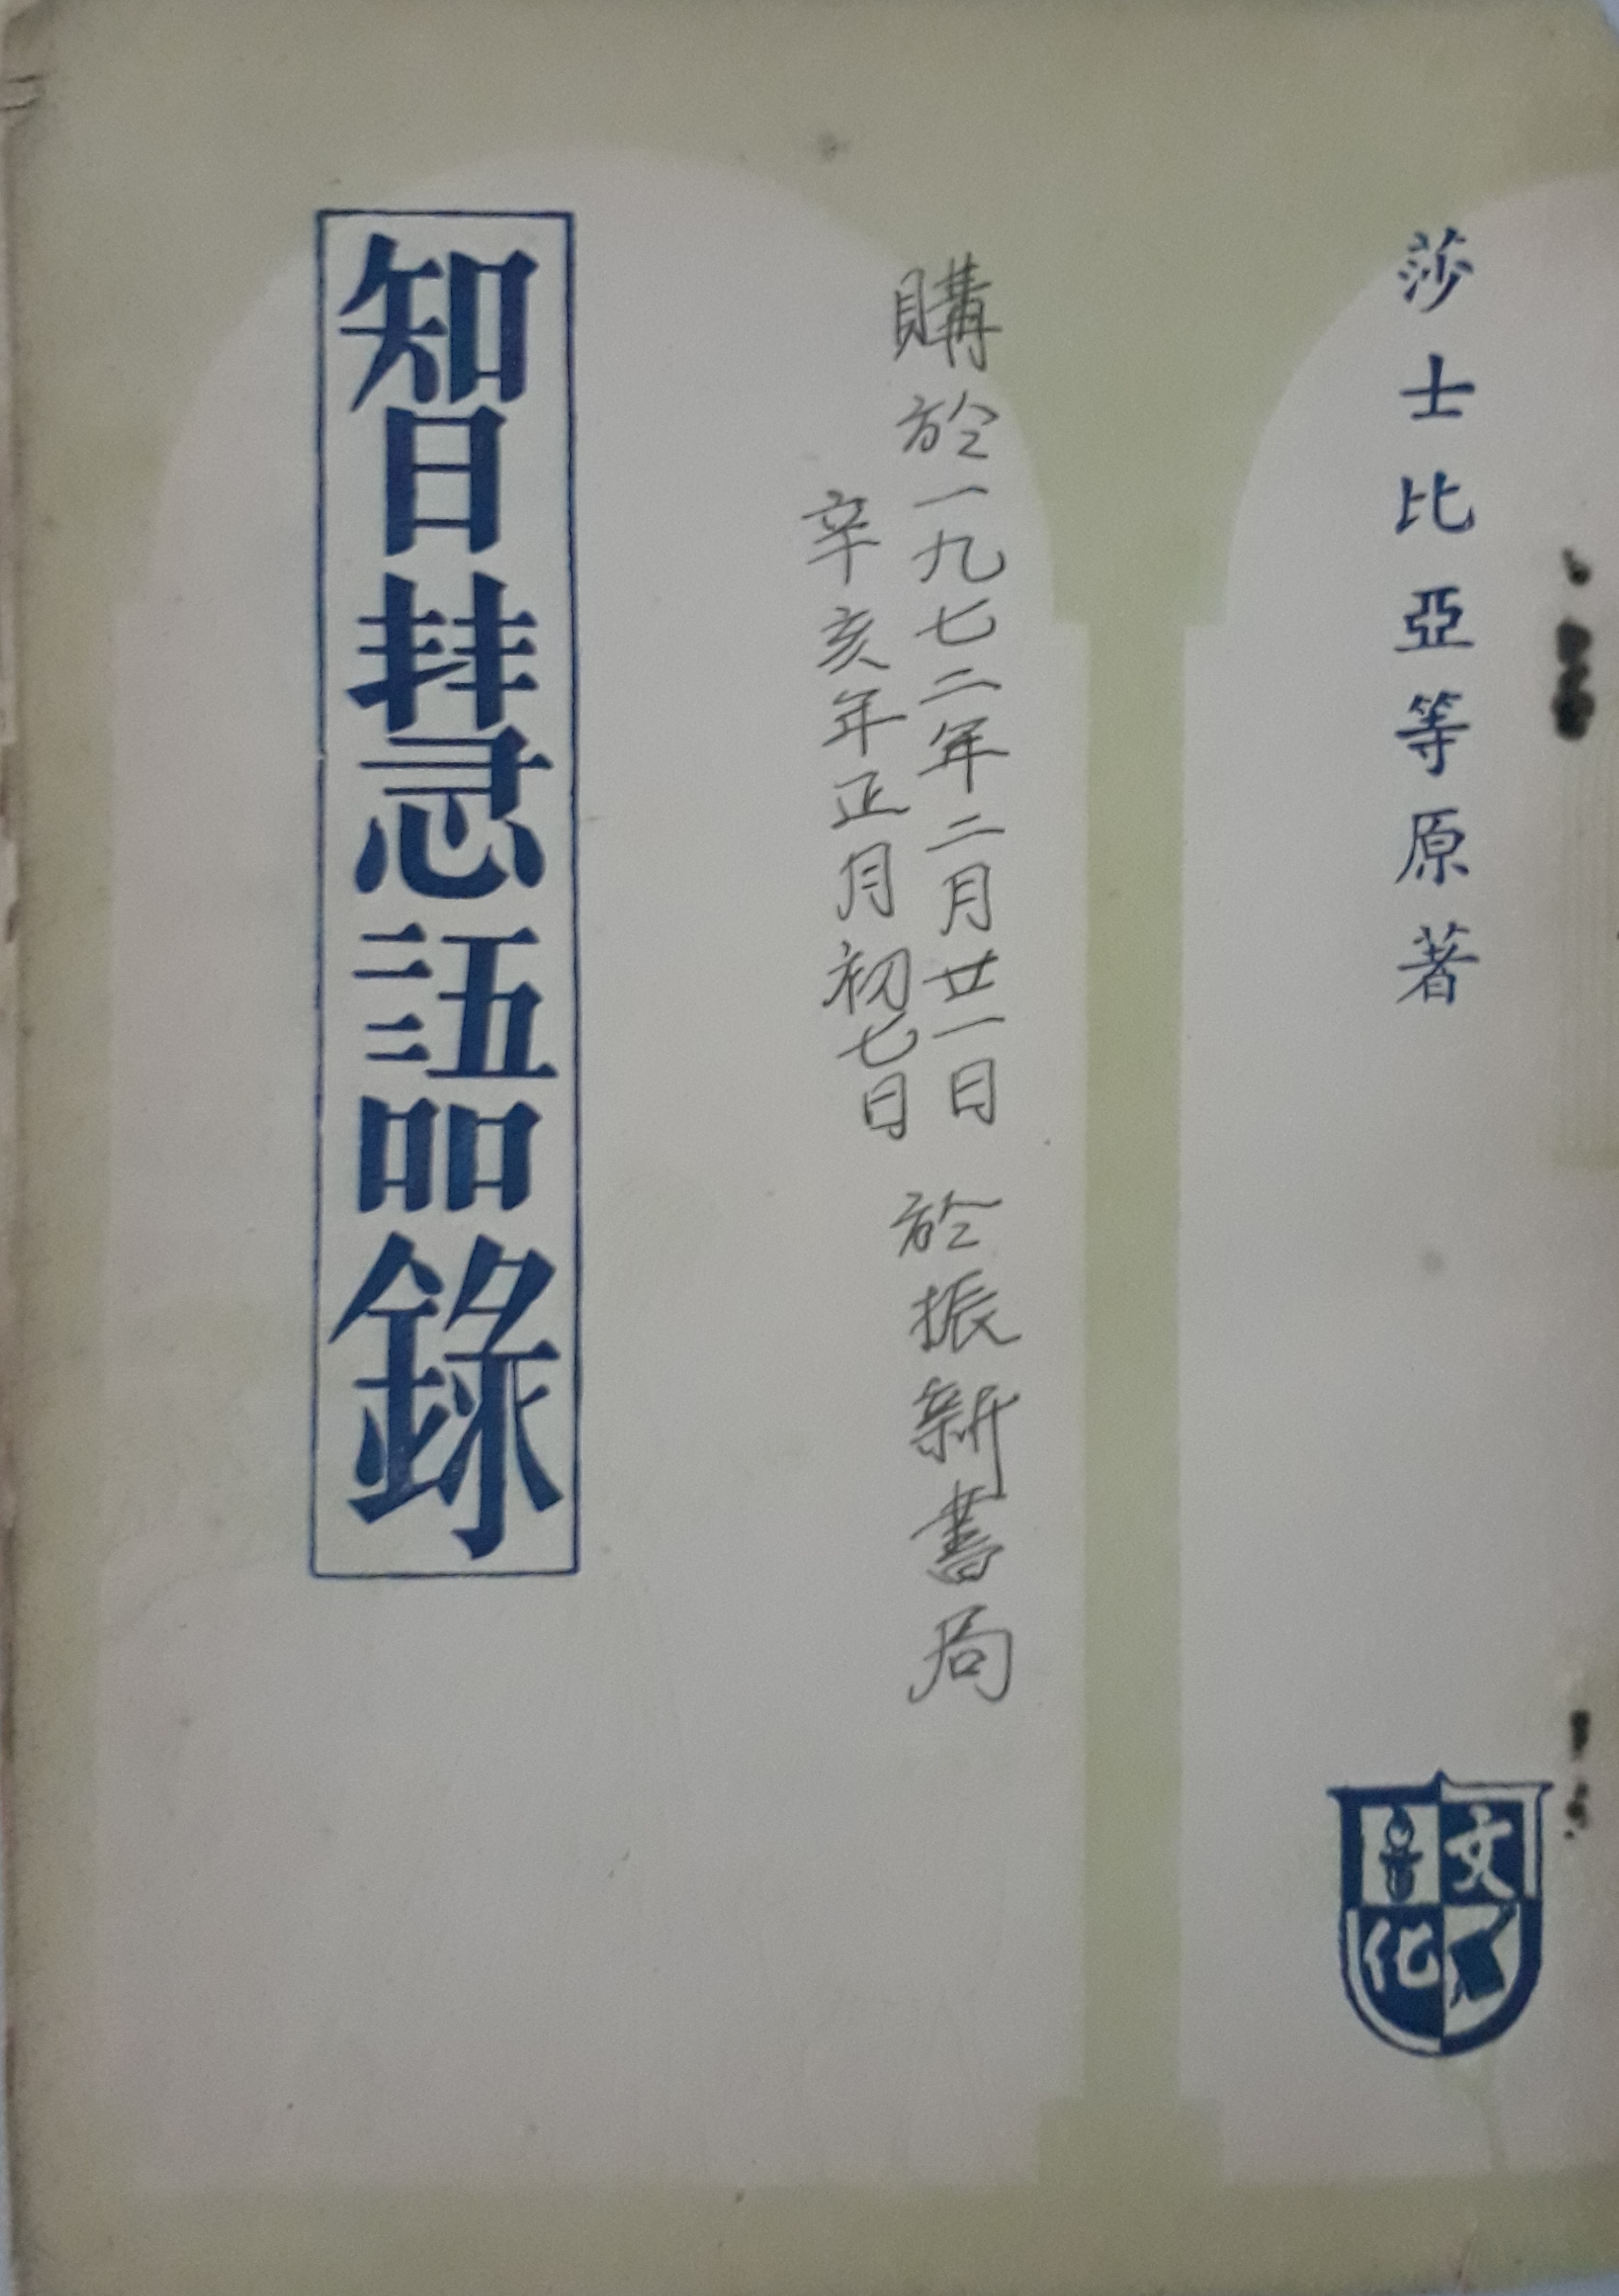 莎士比亞等原著
購於一九七二年二月廿一日 於振新書局
辛亥年正月初七日
智慧語錄
文化